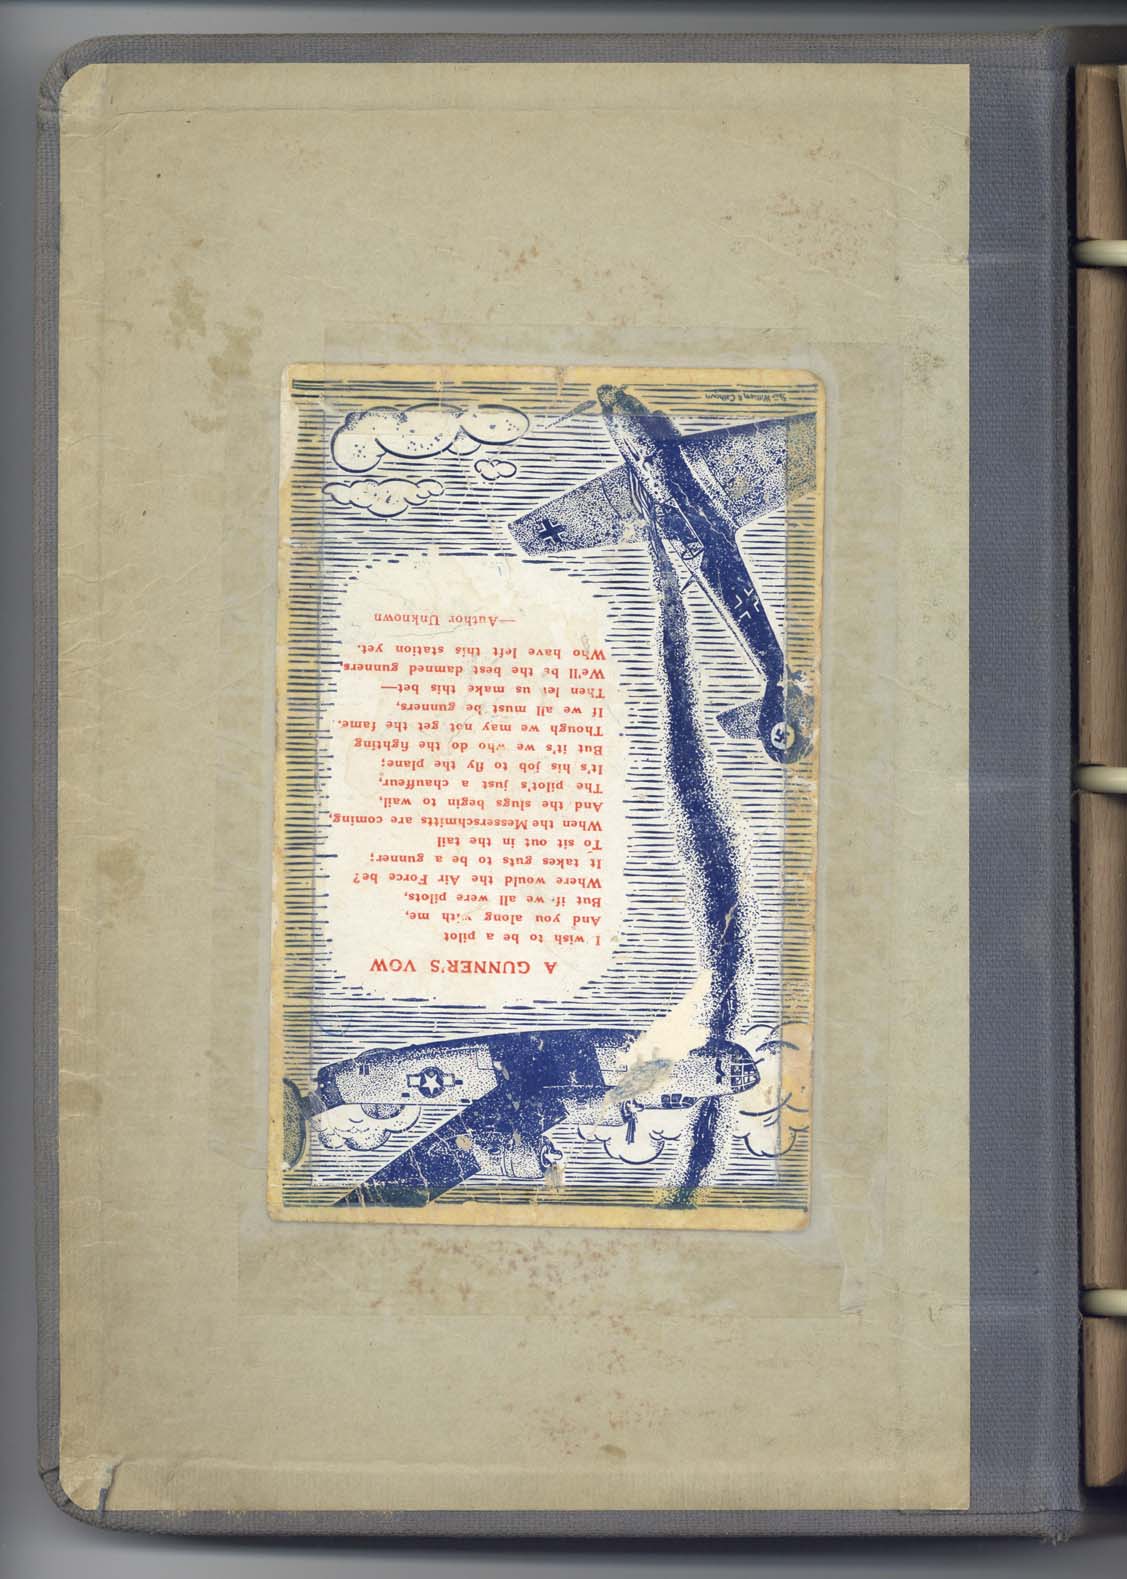 A GUNNER'S VOW
I wish to be a pilot
And you along with me,
But if we all were pilots,
Where would the Air Force be?
It takes guts to be a gunner;
To sit out in the tail
When the Messerschmitts are coming,
And the slugs begin to wail,
The pilot's just a chauffeur,
It's his job to fly the plane;
But it's we who do the fighting
Though we may not get the fame.
If we all must be gunners,
Then let us make this bet—
We'll be the best damned gunners
Who have left this station yet.
—Author Unknown
William R Calhoun